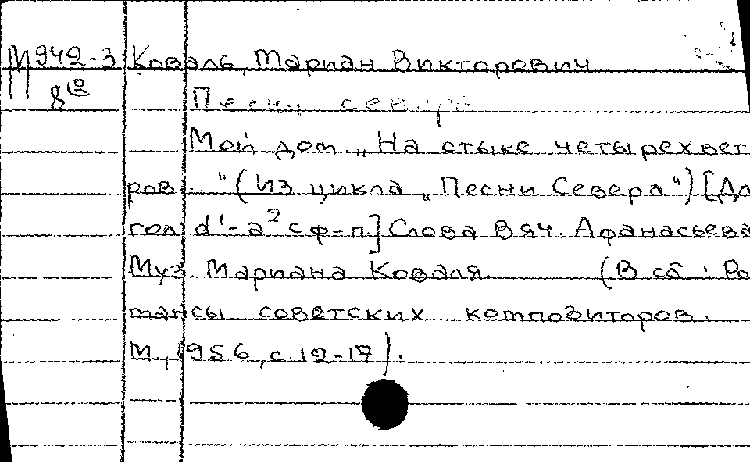 М942-3 Коваль, Мариан Викторович
8º Песни севера
Мой дом „На стыке четырех вет
ров..." (Из цикла „Песни Севера") [Дл
гол d'-a² с ф-п.] Слова Вяч. Афанасьева
Муз. Мариана Коваля. (В сб.: Ро
мансы советских композиторов.
М., 1956, с. 12-17).